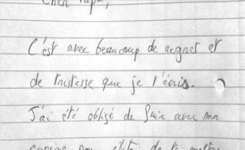 Cher Papa,
C'est avec beaucoup de regret et
de tristesse que je t'écris.
J'ai été obligé de fuir avec mon